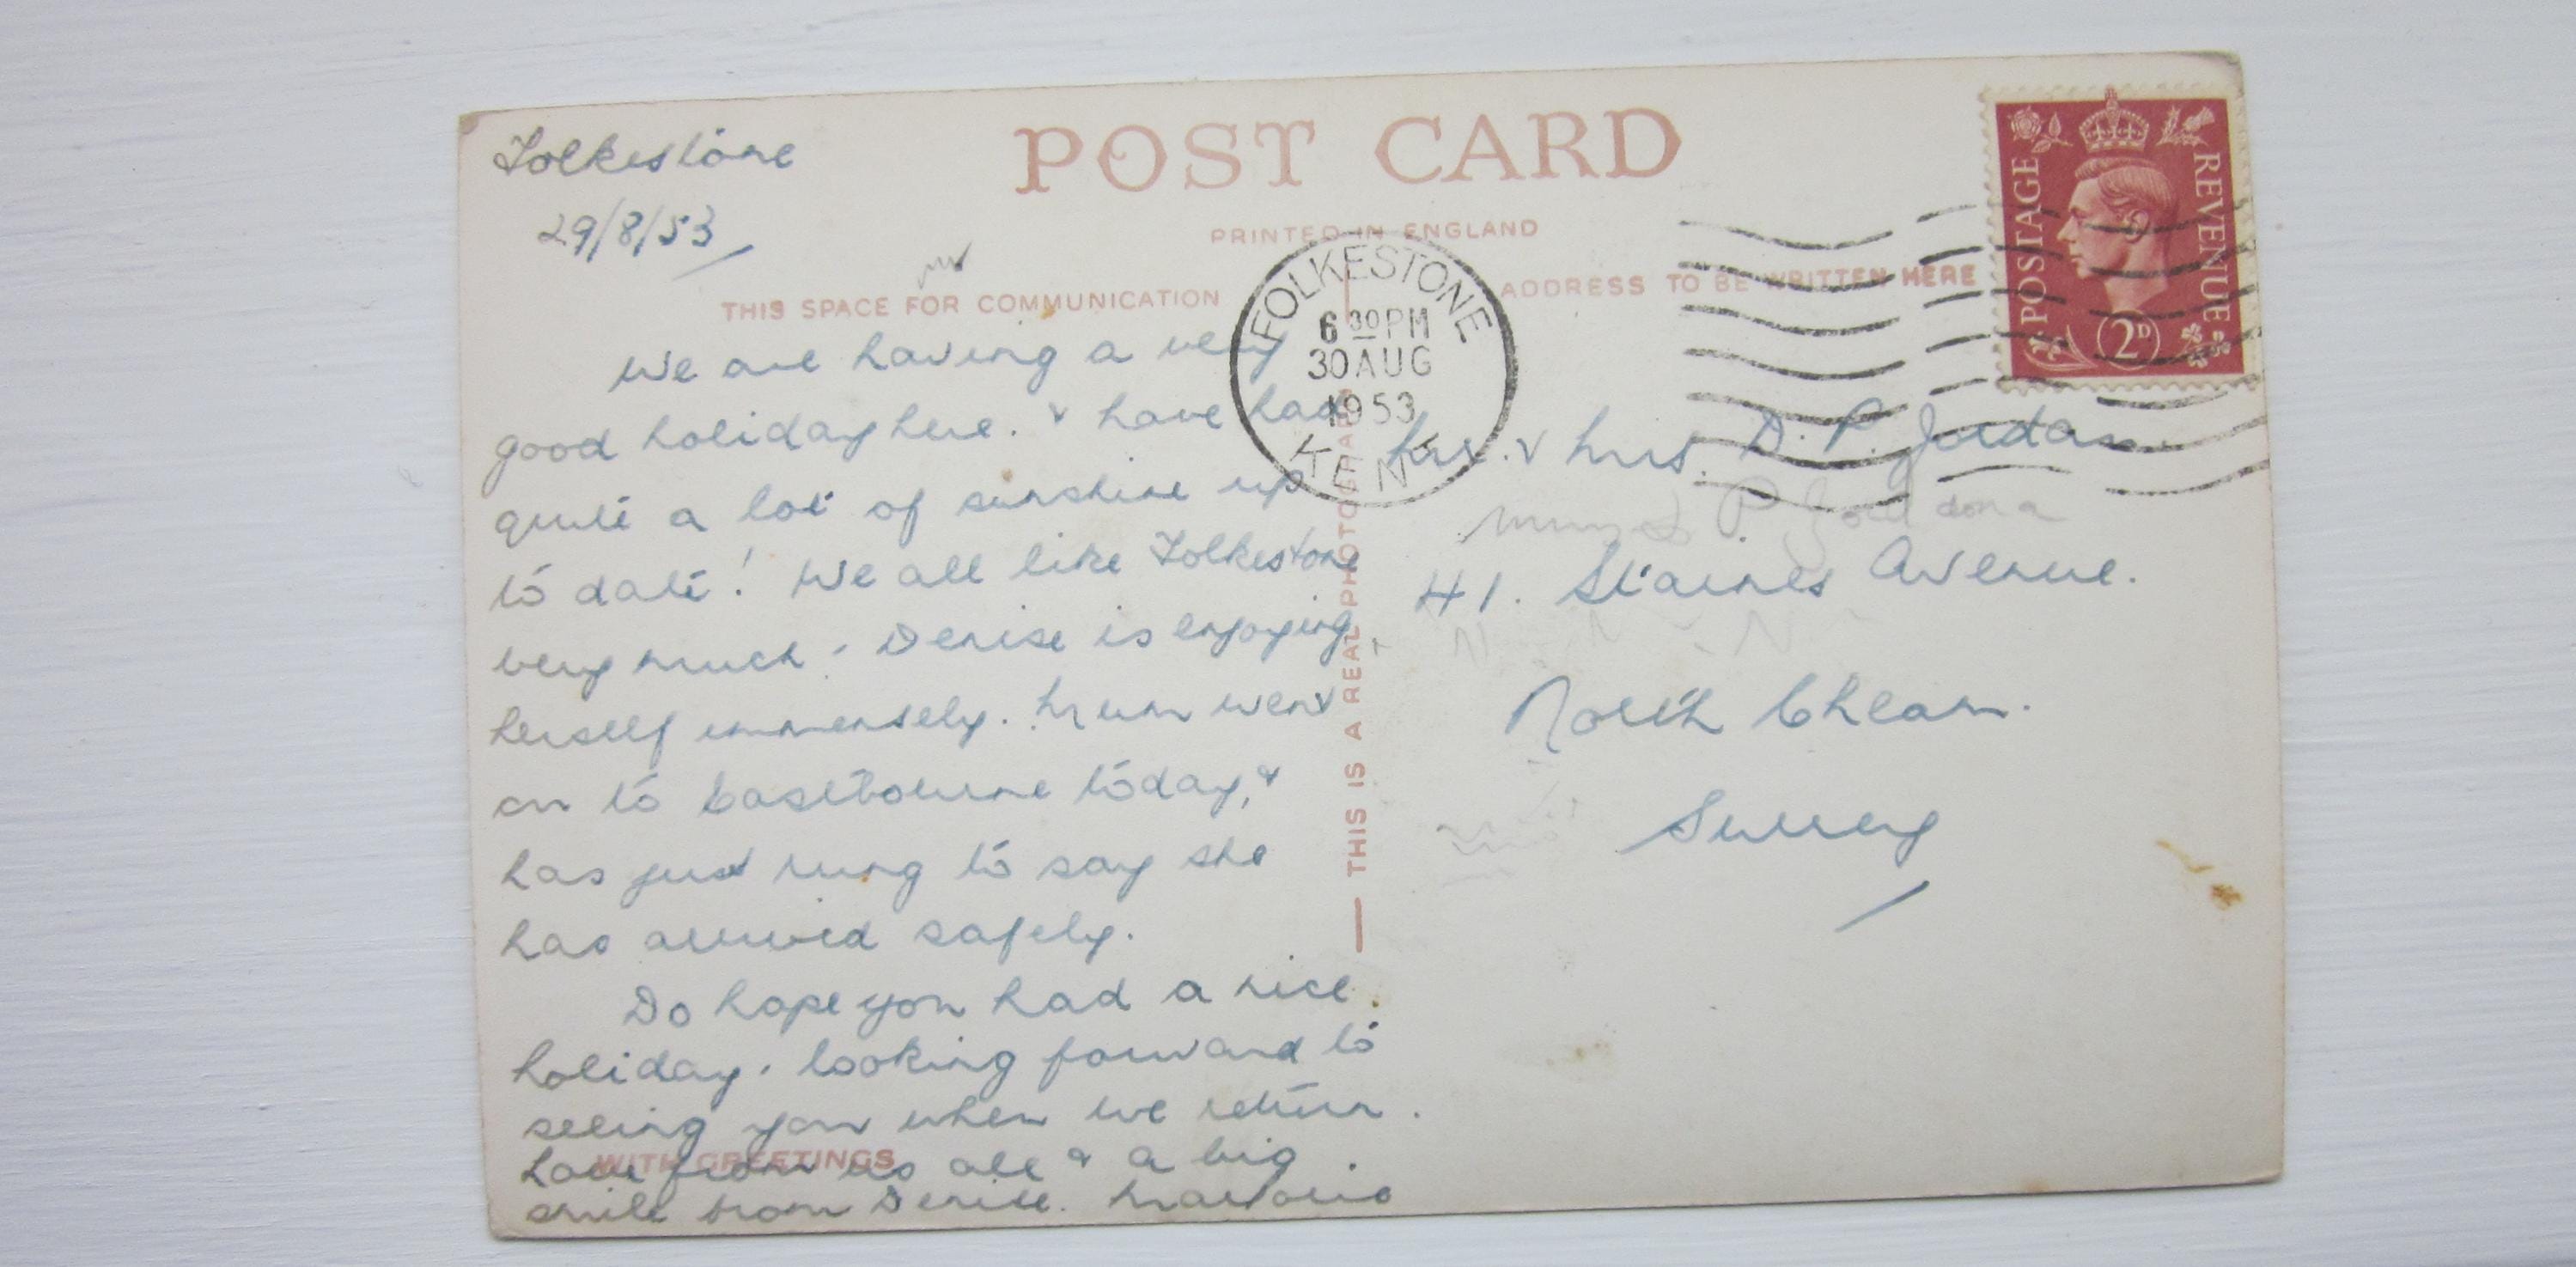 Folkestone
29/8/53
POST CARD
PRINTED IN ENGLAND
THIS SPACE FOR COMMUNICATION
ADDRESS TO BE WRITTEN HERE
We are having a very
good holiday here. & have had
quite a lot of sunshine up
to date! We all like Folkestone
very much. Denise is enjoying
herself immensely. Mum went
on to Eastbourne today, &
has just rung to say she
has arrived safely.
Do hope you had a nice
holiday. looking forward to
seeing you when we return.
WITH GREETINGS
Love from us all & a big
smile from Denise.
THIS IS A REAL PHOTOGRAPH
FOLKESTONE
6 30 PM
30 AUG
1953
KENT
POSTAGE
REVENUE
2D
Mr. & Mrs. D. P. Jordan.
41. Staines Avenue.
North Cheam.
Surrey